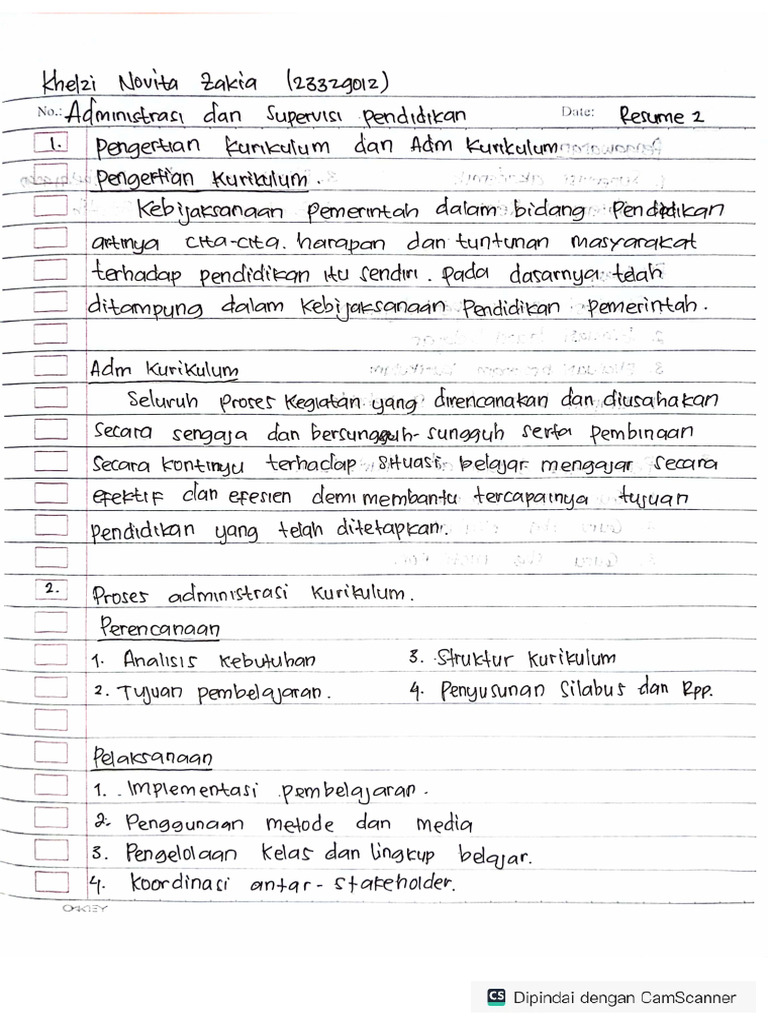 Khelzi Novita Zakia (23329012)
No.: Administrasi dan Supervisi Pendidikan Date: Resume 2
1. Pengertian Kurikulum dan Adm Kurikulum
Pengertian Kurikulum.
Kebijaksanaan pemerintah dalam bidang Pendidikan
artinya cita-cita. harapan dan tuntunan masyarakat
terhadap pendidikan itu sendiri. pada dasarnya telah
ditampung dalam kebijaksanaan Pendidikan pemerintah.
Adm Kurikulum
Seluruh proses kegiatan yang direncanakan dan diusahakan
secara sengaja dan bersungguh-sungguh serta pembinaan
secara kontinyu terhadap situasi belajar mengajar secara
efektif dan efesien demi membantu tercapainya tujuan
pendidikan yang telah ditetapkan.
2. Proses administrasi Kurikulum.
Perencanaan
1. Analisis kebutuhan 3. Struktur Kurikulum
2. Tujuan pembelajaran. 4. Penyusunan Silabus dan Rpp.
Pelaksanaan
1. Implementasi pembelajaran.
2. Penggunaan metode dan media
3. Pengelolaan kelas dan lingkup belajar.
4. Koordinasi antar-stakeholder.
CS Dipindai dengan CamScanner